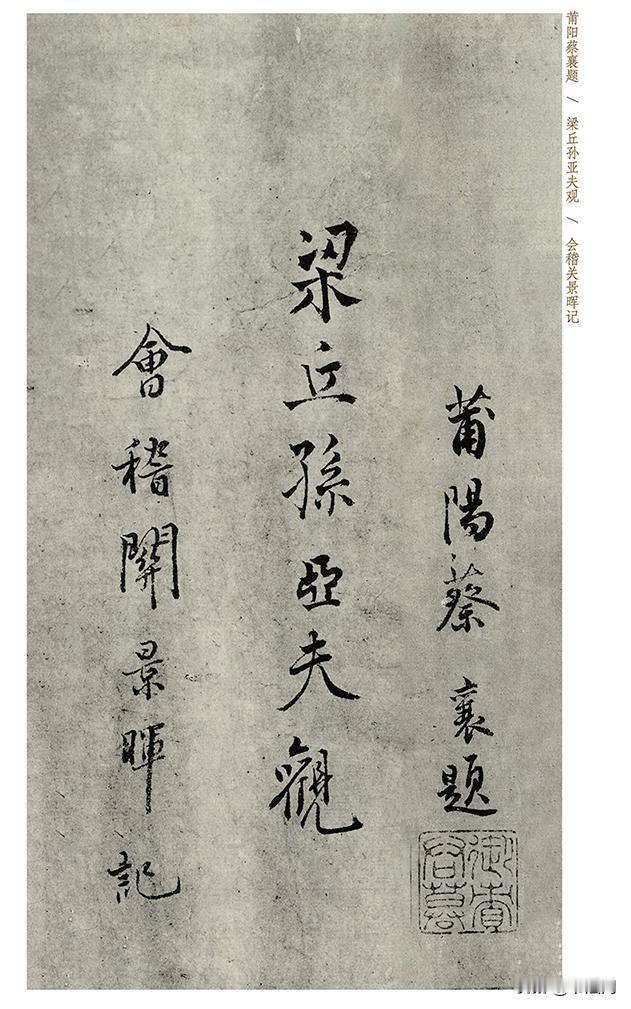 莆陽蔡襄題
梁丘孫亞夫觀
會稽關景暉記
莆阳蔡襄题 / 梁丘孙亚夫观 / 会稽关景晖记